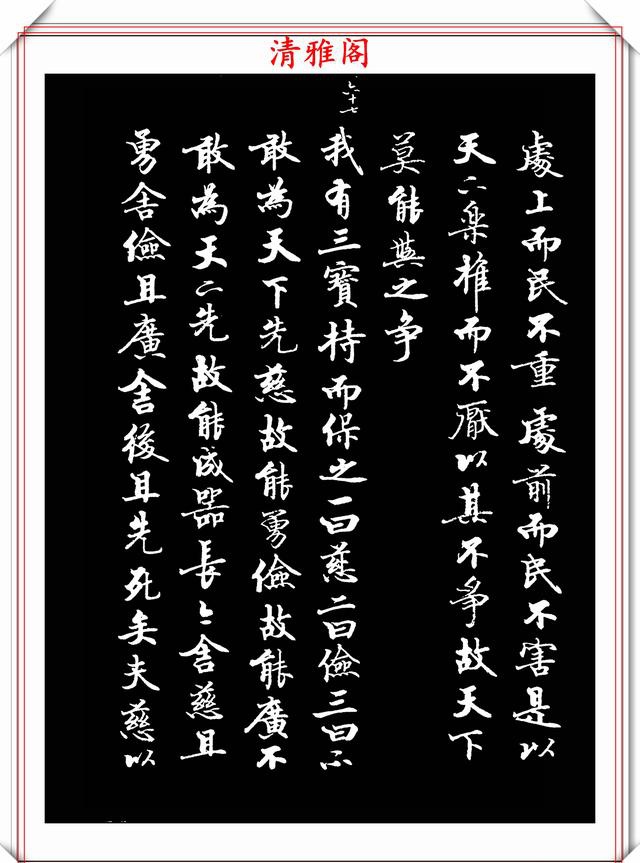 清雅阁
處上而民不重處前而民不害是以
天下楽推而不厭以其不爭故天下
莫能與之争
六十七
我有三寶持而保之一曰慈二曰儉三曰不
敢為天下先慈故能勇儉故能廣不
敢為天下先故能成器長今舍慈且
勇舍儉且廣舍後且先死矣夫慈以